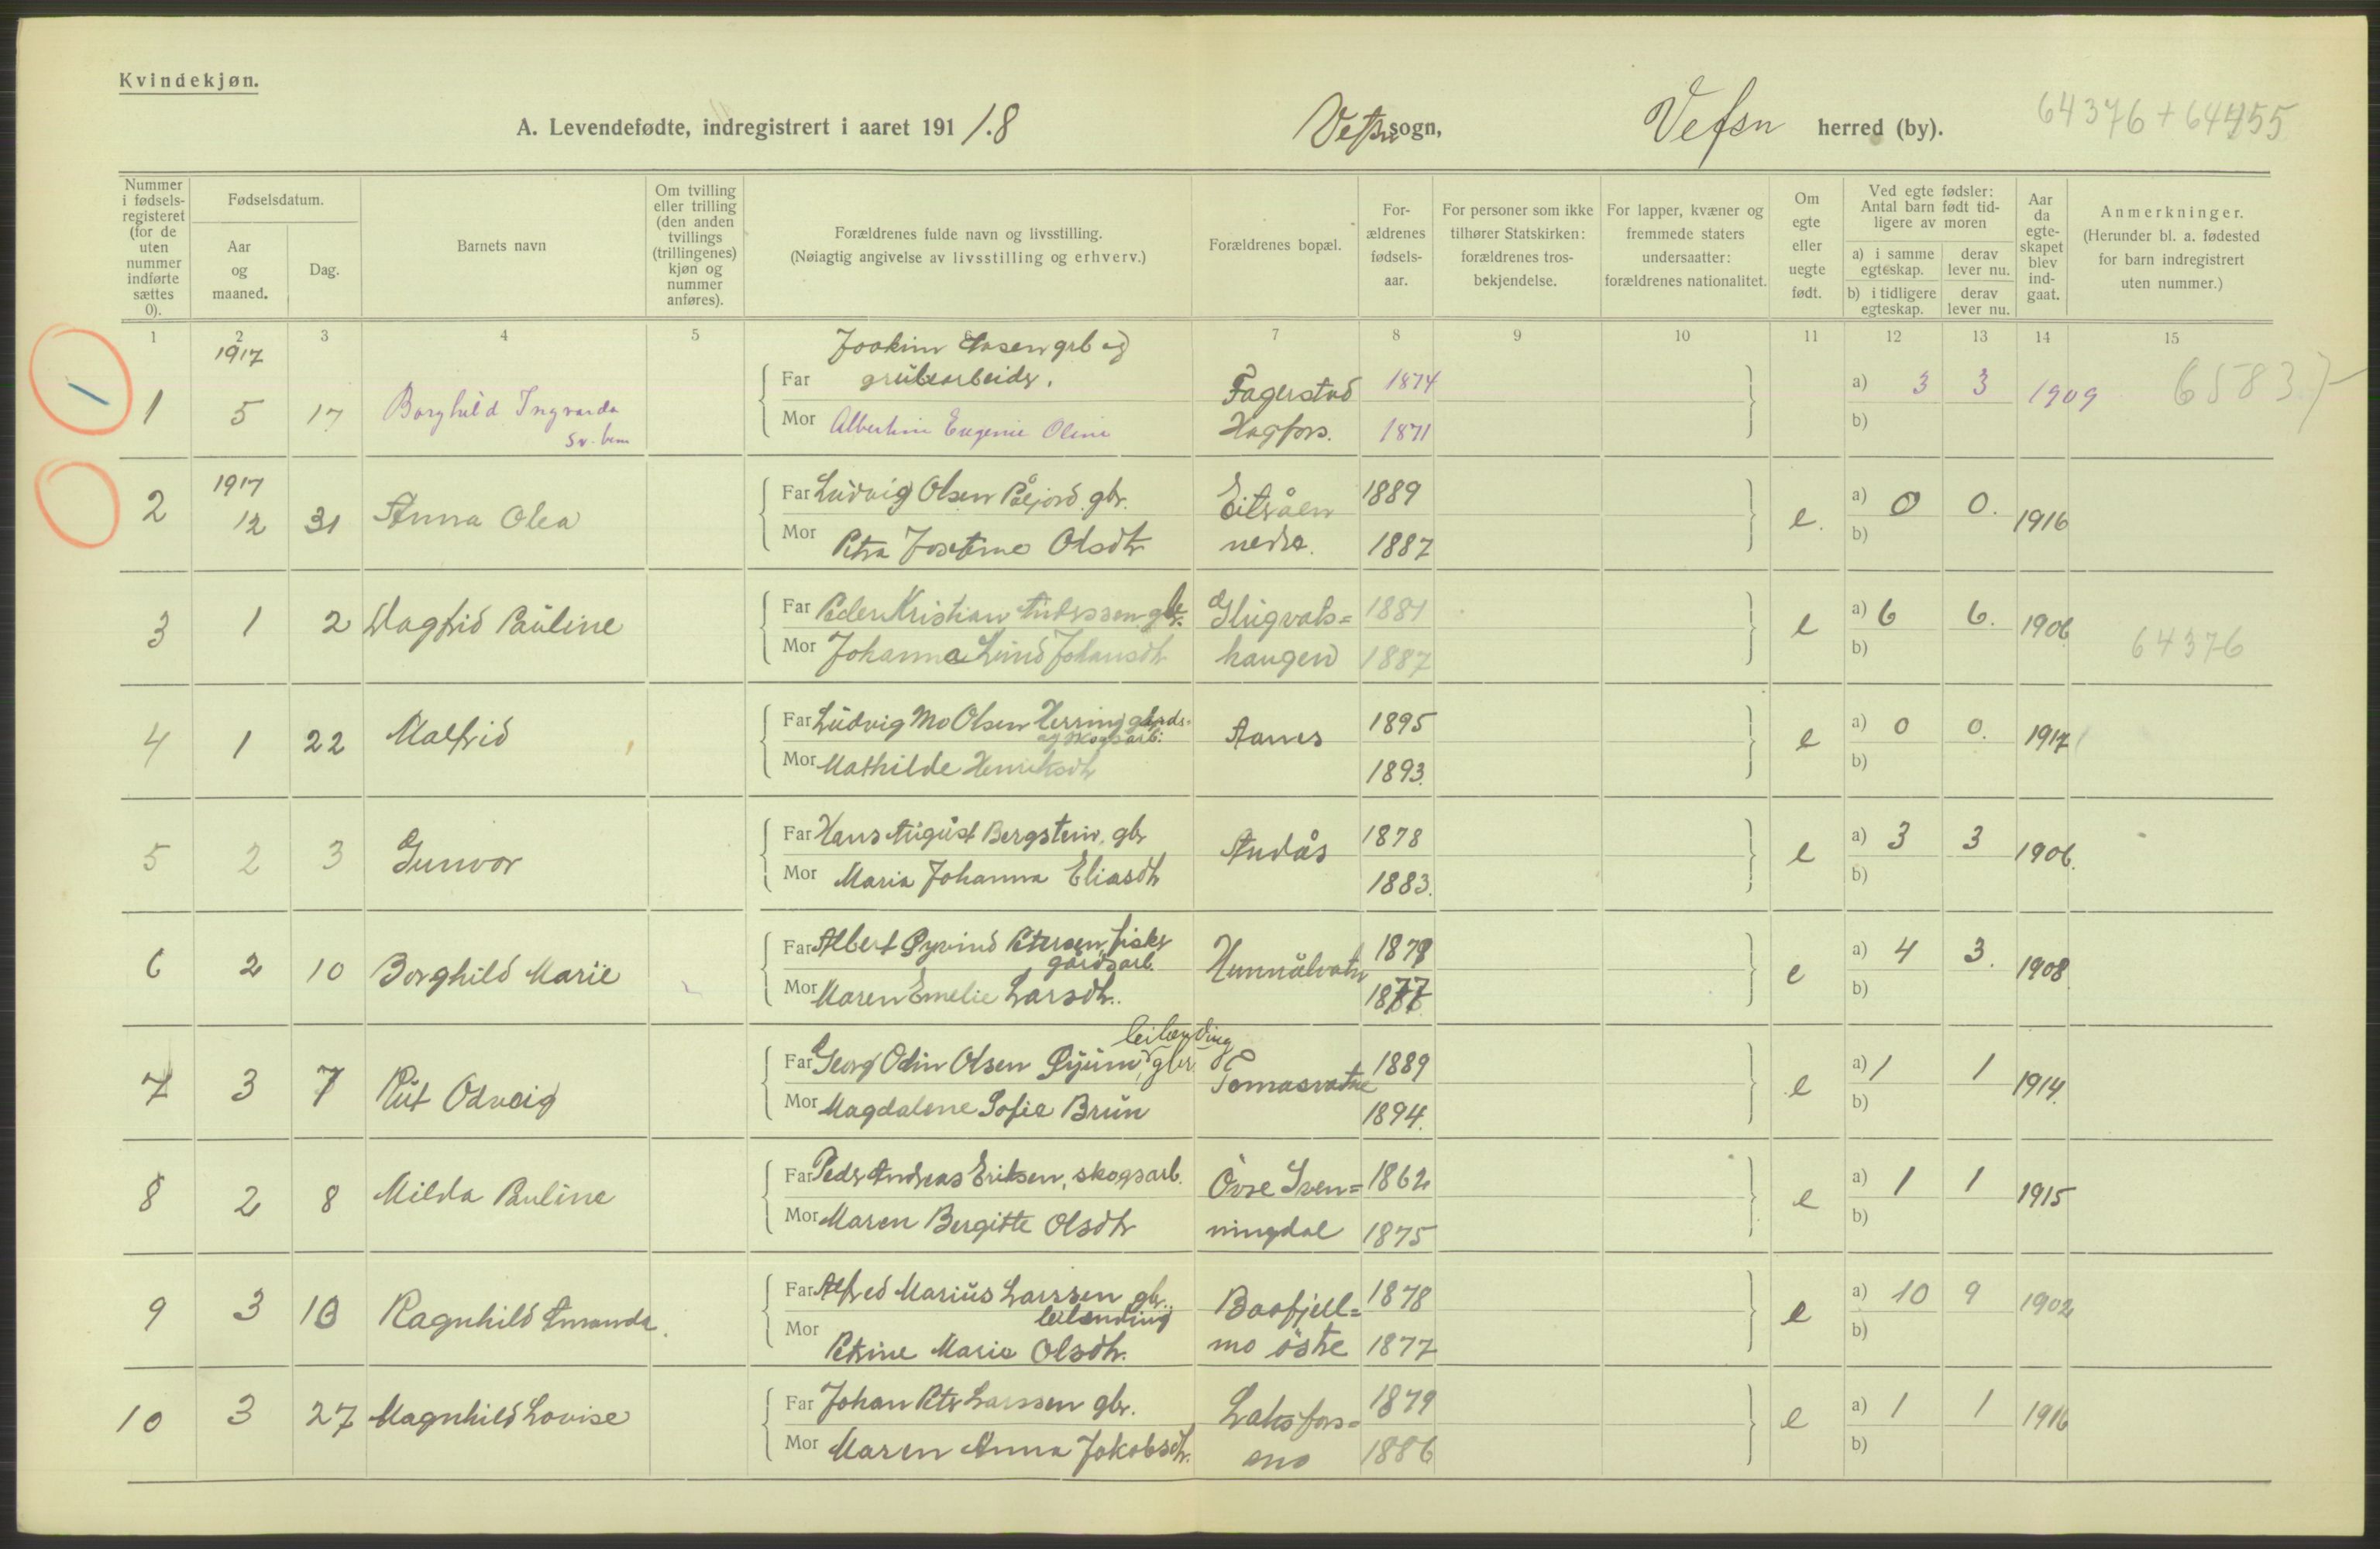 Kvindekjøn.
A. Levendefødte, indregistrert i aaret 191 1.8 Vefsn sogn, Vefsn herred (by). 64376 + 64455
Nummer i fødsels-registeret (for de uten nummer indførte sættes 0).
Fødselsdatum.
Aar og maaned.
Dag.
Barnets navn
Om tvilling eller trilling (den anden tvillings (trillingenes) kjøn og nummer anføres).
Forældrenes fulde navn og livsstilling.
(Nøiagtig angivelse av livsstilling og erhverv.)
Forældrenes bopæl.
For-ældrenes fødsels-aar.
For personer som ikke tilhører Statskirken: forældrenes tros-bekjendelse.
For lapper, kvæner og fremmede staters undersaatter: forældrenes nationalitet.
Om egte eller uegte født.
Ved egte fødsler: Antal barn født tid-ligere av moren
a) i samme egteskap. derav lever nu.
b) i tidligere egteskap. derav lever nu.
Aar da egte-skapet blev ind-gaat.
Anmerkninger.
(Herunder bl. a. fødested for barn indregistrert uten nummer.)
1 2 3 4 5 6 7 8 9 10 11 12 13 14 15
1917 Joakim grb og
Far grubearbeidr. Fagerstad 1874 a) 3 3 1909 6583
1 5 17 Borghild Ingvarda
Mor Albertine Eugenie Oline Hagfors. 1871 b)
1917 Far Ludvig Olsen gbr. Eitråen 1889 a) 0 0.
2 12 31 Anna Olea e. 1916
Mor Petra Josefine Olsdtr nedre. 1887 b)
Far Peder Kristian Anderssen gbr. Slugvals= 1881 a) 6 6.
3 1 2 Dagfrid Pauline e 1906 64376
Mor Johanna Lund Johansdtr haugen 1887 b)
Far Ludvig Mo Olsen Herring
og skogsarb. 1895 a) 0 0.
4 1 22 Malfrid Aanes e 1917
Mor Mathilde Henriksdtr 1893. b)
Far Hans August Bergstein. gbr 1878 a) 3 3
5 2 3 Gunvor Andås e 1906.
Mor Maria Johanna Eliasdtr 1883. b)
Far Albert Øyvind Petersen, fisker
gårdsarb. Hunnålvatn 1879 a) 4 3.
6 2 10 Borghild Marie e 1908
Mor Maren Emelie Larsdtr. 1877 b)
leilending
Far Georg Odin Olsen Øyum, gbr Tomasvatne 1889 a) 1 1
7 3 7 Rut Odveig e 1914.
Mor Magdalene Sofie Brun 1894. b)
Far Peder Andreas Eriksen, skogsarb. Övre Sven= 1862 a) 1 1
8 2 8 Milda Pauline e 1915
Mor Maren Bergitte Olsdtr ningdal 1875 b)
Far Alfred Marius Larssen gbr.
leilending Baafjell= 1878 a) 10 9 1902
9 3 13 Ragnhild Amanda. e
Mor Petrine Marie Olsdtr. mo östre 1877 b)
Far Johan Peter Larssen gbr. Laksfors= 1879 a) 1 1 1916
10 3 27 Magnhild Lovise e
Mor Maren Anna Jakobsdtr. mo 1886 b)